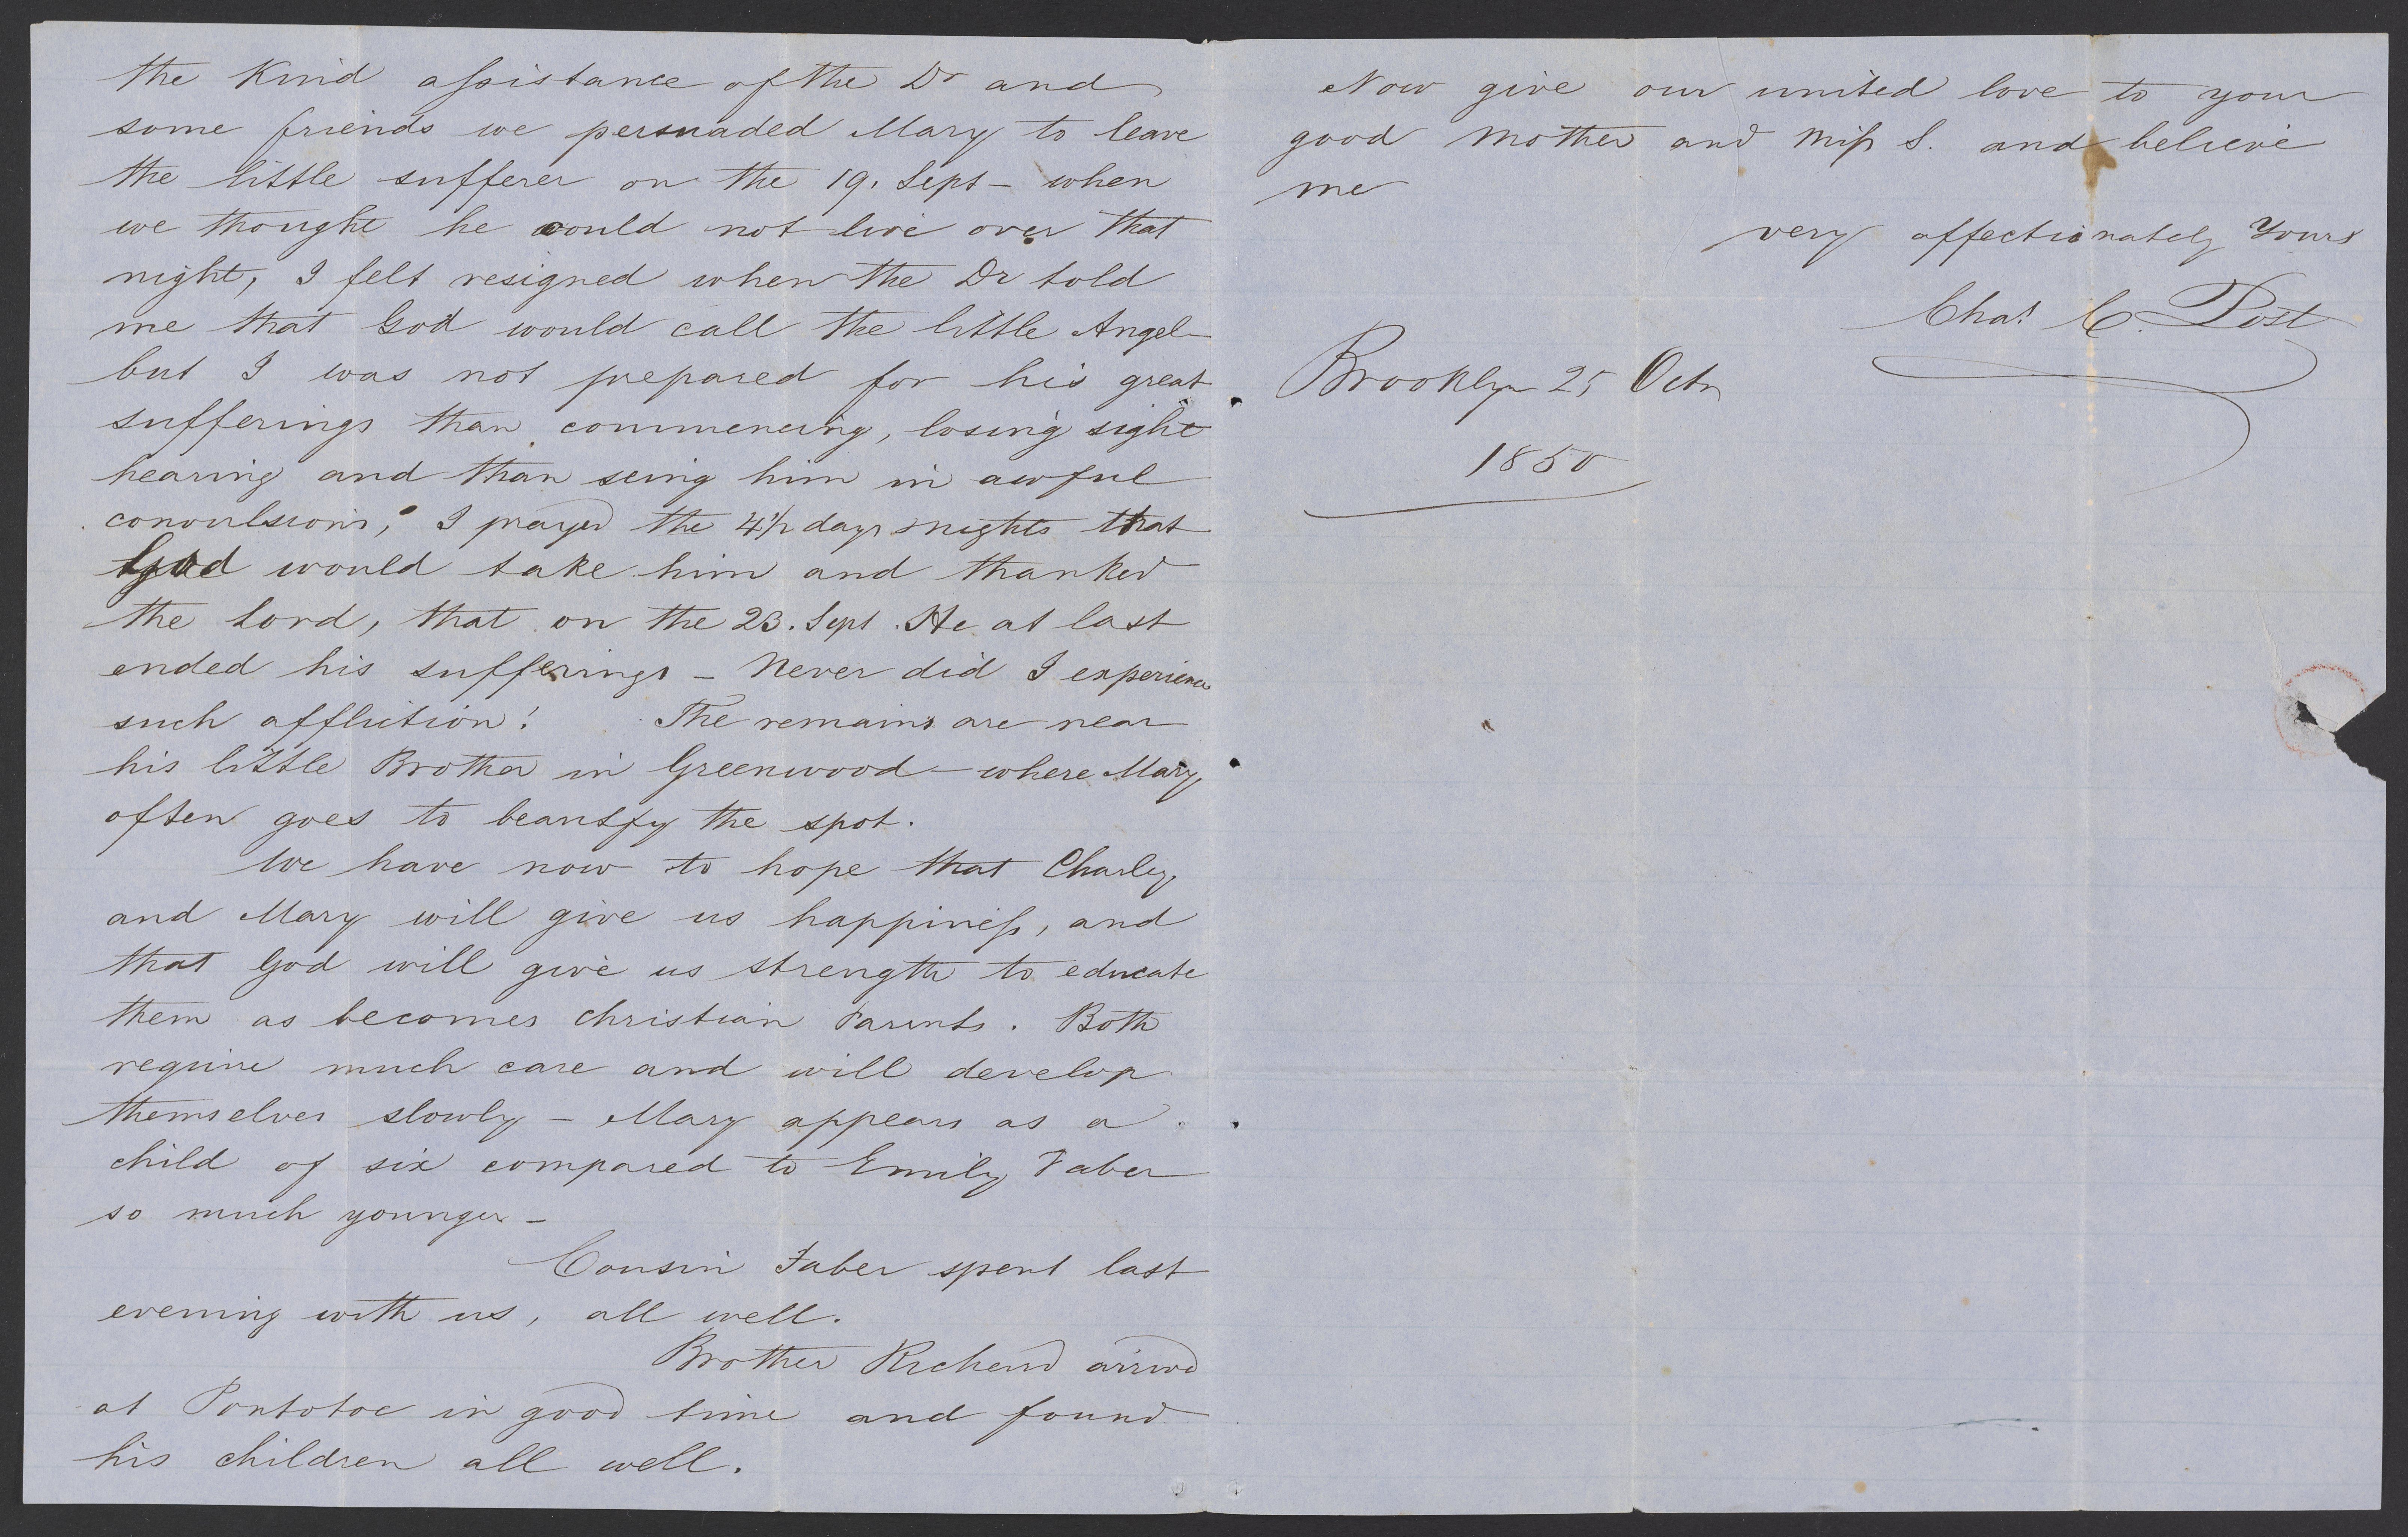 the Kind assistance of the Dr and
some friends we persuaded Mary to leave
the little sufferer on the 19. Sept - when
we thought he could not live over that
night, I felt resigned when the Dr told
me that God would call the little Angel
but I was not prepared for his great
sufferings than commencing, losing sight
hearing and than seing him in awful
convulsions, I prayed the 4½ days & nights that
God would take him and thanked
the Lord, that on the 23. Sept. He at last
ended his sufferings - Never did I experience
such affliction! The remains are near
his little Brother in Greenwood - where Mary
often goes to beautify the spot.
We have now to hope that Charley
and Mary will give us happiness, and
that God will give us strength to educate
them as becomes christian Parents. Both
require much care and will develop
themselves slowly - Mary appears as a
child of six compared to Emily Faber
so much younger -
Cousin Faber spent last
evening with us, all well.
Brother Richard arrived
at Pontotoc in good time and found
his children all well.
Now give our united love to your
good Mother and Miss S. and believe
me
very affectionately Yours
Chas C. Post
Brooklyn 25 Octr
1850